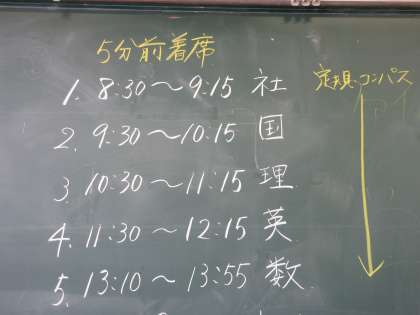 5分前着席
1. 8:30〜9:15 社
定規 コンパス
2. 9:30〜10:15 国
3. 10:30〜11:15 理
4. 11:30〜12:15 英
5. 13:10〜13:55 数